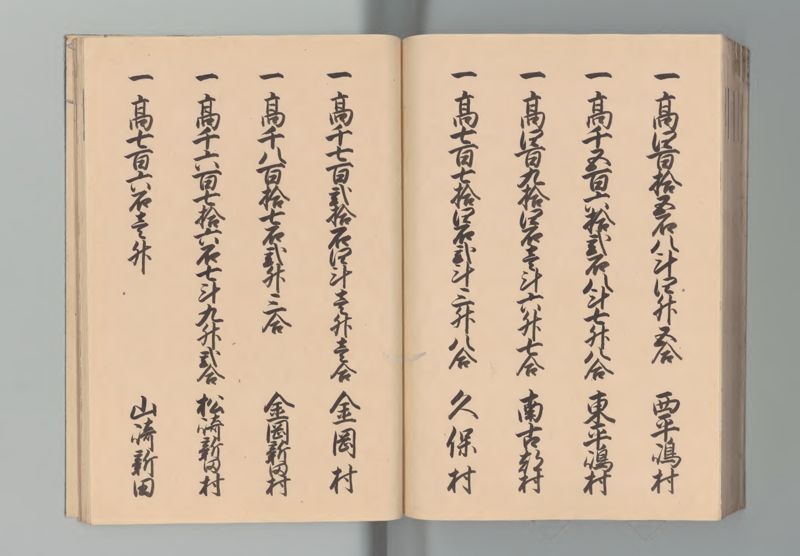 一高四百拾五石八斗四升五合 西平嶋村
一高千五百六拾弐石八斗七升八合 東平嶋村
一高四百九拾四石壱斗六升七合 南古都村
一高七百七拾四石弐斗三升八合 久保村
一高千七百弐拾石四斗壱升壱合 金岡村
一高千八百拾七石弐升三合 金岡新田村
一高千六百七拾六石七斗九升弐合 松崎新田村
一高七百六石壱升 山崎新田